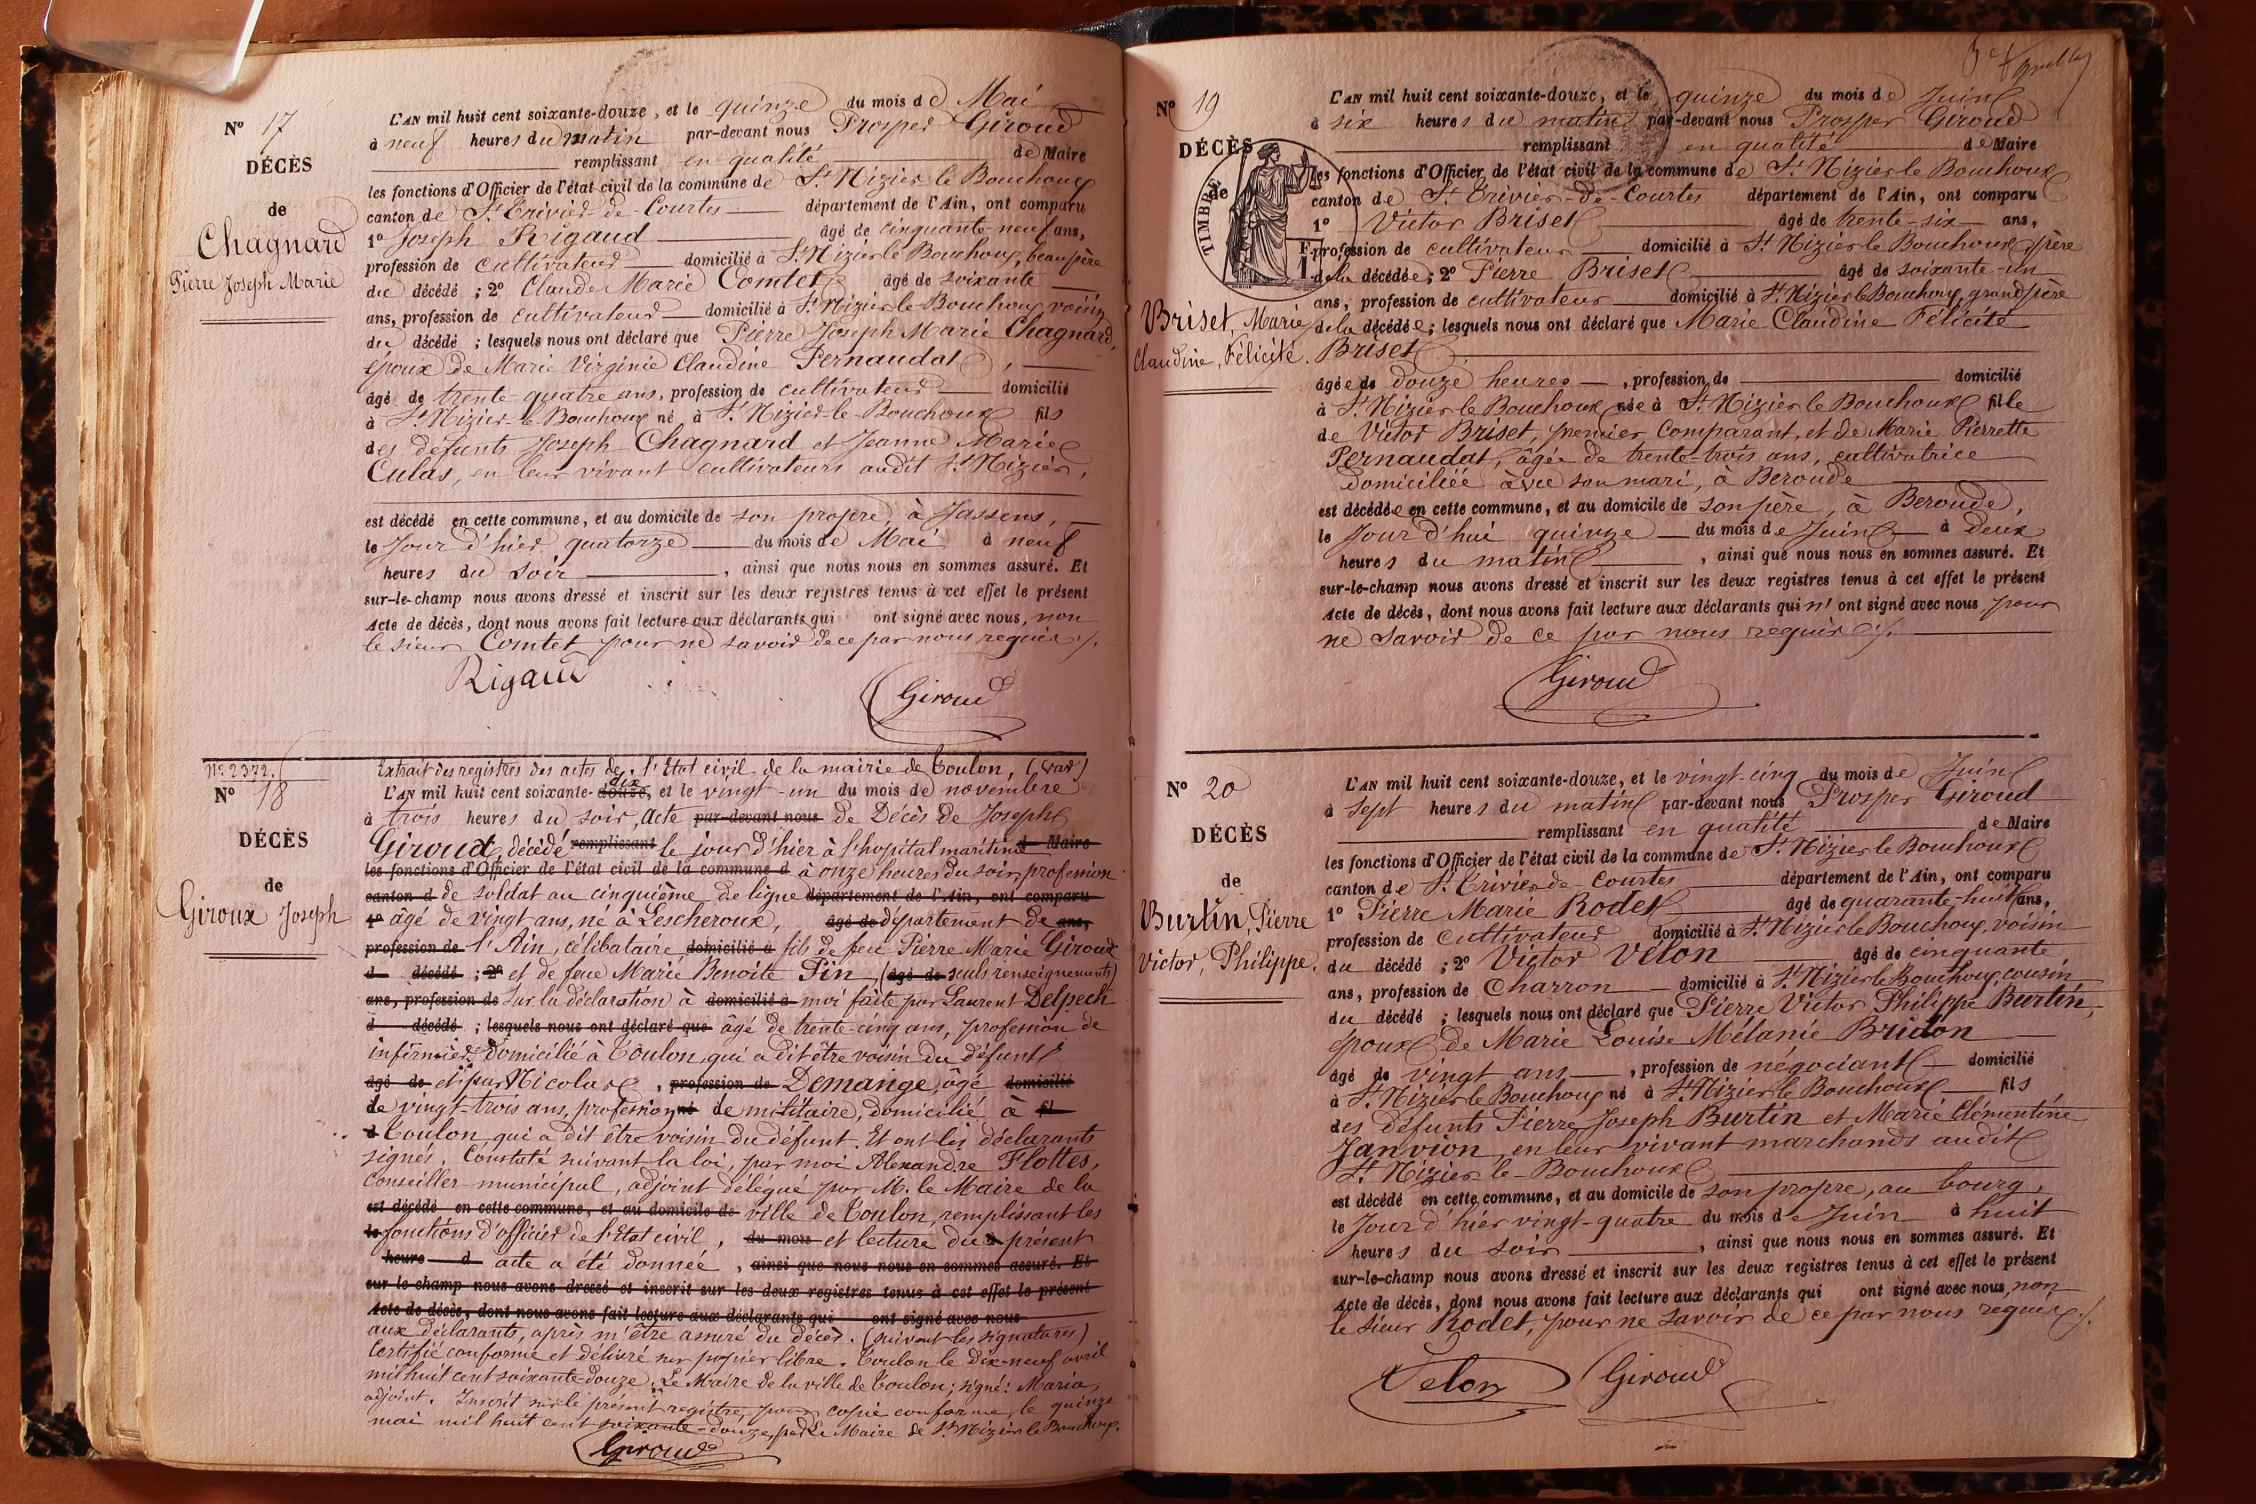 N° 17
DÉCÈS
de
Chagnard
Pierre Joseph Marie
L'AN mil huit cent soixante-douze, et le quinze du mois de Mai
à neuf heures du matin par-devant nous Prosper Giroud
remplissant en qualité de Maire
les fonctions d'Officier de l'état civil de la commune de St Nizier le Bouchoux
canton de St Trivier-de-Courtes département de l'Ain, ont comparu
1° Joseph Rigaud âgé de cinquante-neuf ans,
profession de cultivateur domicilié à St Nizier le Bouchoux, beau père
du décédé ; 2° Claude Marie Comtet âgé de soixante
ans, profession de cultivateur domicilié à St Nizier-le-Bouchoux voisin
du décédé ; lesquels nous ont déclaré que Pierre Joseph Marie Chagnard,
époux de Marie Virginie Claudine Pernaudat,
âgé de trente-quatre ans, profession de cultivateur domicilié
à St Nizier-le-Bouchoux né à St Nizier-le-Bouchoux fils
des défunts Joseph Chagnard et Jeanne Marie
Culas, en leur vivant cultivateurs audit St Nizier,
est décédé en cette commune, et au domicile de son propre, à Jassens,
le Jour d'hier quatorze du mois de Mai à neuf
heures du soir, ainsi que nous nous en sommes assuré. Et
sur-le-champ nous avons dressé et inscrit sur les deux registres tenus à cet effet le présent
Acte de décès, dont nous avons fait lecture aux déclarants qui ont signé avec nous, non
le sieur Comtet pour ne savoir de ce par nous requis ./.
Rigaud
Giroud
N° 2372.
N° 18
DÉCÈS
de
Giroux Joseph
Extrait des registres des actes de l'Etat civil de la mairie de Toulon, (Var)
dix
L'AN mil huit cent soixante-douze, et le vingt-un du mois de novembre
à trois heures du soir, Acte par-devant nous de Décès de Joseph
Giroud, décédé remplissant le jour d'hier à l'hopital maritime d Maire
les fonctions d'Officier de l'état civil de la commune d à onze heures du soir, profession
canton d de soldat au cinquième de ligne département de l'Ain, ont comparu
1° âgé de vingt ans, né à Lescheroux, âgé de département de ans,
profession de l'Ain, célibataire domicilié à fils de feu Pierre Marie Giroud
d décédé ; 2° et de feue Marie Benoite Pin (âgé de seuls renseignements)
ans, profession de Sur la déclaration à domicilié à moi faite par Laurent Delpech
d décédé ; lesquels nous ont déclaré que âgé de trente-cinq ans, profession de
infirmier domicilié à Toulon, qui a dit être voisin du défunt
âgé de et par Nicolas, profession de Demange, âgé domicilié
de vingt-trois ans, profession né de militaire, domicilié à fil
d Toulon qui a dit être voisin du défunt. Et ont les déclarants
signés. Constaté suivant la loi, par moi Alexandre Flottes,
Conseiller municipal, adjoint délégué par M. le Maire de la
est décédé en cette commune, et au domicile de ville de Toulon, remplissant les
le fonctions d'officier de l'Etat civil, du mois et lecture du à présent
heure d acte a été donnée, ainsi que nous nous en sommes assuré. Et
sur-le-champ nous avons dressé et inscrit sur les deux registres tenus à cet effet le présent
Acte de décès, dont nous avons fait lecture aux déclarants qui ont signé avec nous
aux déclarants, après m'être assuré du décès. (suivent les signatures)
Certifié conforme et délivré sur papier libre. Toulon le Dix-neuf avril
mil huit cent soixante-douze. Le Maire de la ville de Toulon; signé: Maria,
adjoint. Inscrit sur le présent registre, pour copie conforme, le quinze
mai mil huit cent soixante-douze, par Le Maire de St Nizier le Bouchoux.
Giroud
N° 19
DÉCÈS
de
TIMBRE
Briset, Marie
Claudine, Félicité.
L'AN mil huit cent soixante-douze, et le quinze du mois de Juin
à six heures du matin par-devant nous Prosper Giroud
remplissant en qualité de Maire
les fonctions d'Officier de l'état civil de la commune de St Nizier le Bouchoux
canton de St Trivier-de-Courtes département de l'Ain, ont comparu
1° Victor Briset âgé de trente-six ans,
profession de cultivateur domicilié à St Nizier le Bouchoux père
de la décédée ; 2° Pierre Briset âgé de soixante-un
ans, profession de cultivateur domicilié à St Nizier le Bouchoux grand père
de la décédée ; lesquels nous ont déclaré que Marie Claudine Félicité
Briset
âgée de douze heures, profession de domicilié
à St Nizier le Bouchoux née à St Nizier le Bouchoux fille
de Victor Briset, premier comparant, et de Marie Pierrette
Pernaudat, âgée de trente-trois ans, cultivatrice
domiciliée avec son mari, à Beroude
est décédée en cette commune, et au domicile de son père, à Beroude,
le Jour d'hui quinze du mois de Juin à deux
heures du matin, ainsi que nous nous en sommes assuré. Et
sur-le-champ nous avons dressé et inscrit sur les deux registres tenus à cet effet le présent
Acte de décès, dont nous avons fait lecture aux déclarants qui n'ont signé avec nous pour
ne savoir de ce par nous requis ./.
Giroud
N° 20
DÉCÈS
de
Burtin, Pierre
Victor, Philippe.
L'AN mil huit cent soixante-douze, et le vingt-cinq du mois de Juin
à sept heures du matin par-devant nous Prosper Giroud
remplissant en qualité de Maire
les fonctions d'Officier de l'état civil de la commune de St Nizier le Bouchoux
canton de St Trivier-de-Courtes département de l'Ain, ont comparu
1° Pierre Marie Rodet âgé de quarante-huit ans,
profession de cultivateur domicilié à St Nizier le Bouchoux, voisin
du décédé ; 2° Victor Velon âgé de cinquante
ans, profession de Charron domicilié à St Nizier le Bouchoux, cousin
du décédé ; lesquels nous ont déclaré que Pierre Victor Philippe Burtin,
époux de Marie Louise Mélanie Bridon
âgé de vingt ans, profession de négociant domicilié
à St Nizier le Bouchoux né à St Nizier le Bouchoux fils
des défunts Pierre Joseph Burtin et Marie Clémentine
Janvion, en leur vivant marchands audit
St Nizier-le-Bouchoux
est décédé en cette commune, et au domicile de son propre, au bourg,
le Jour d'hier vingt-quatre du mois de Juin à huit
heures du soir, ainsi que nous nous en sommes assuré. Et
sur-le-champ nous avons dressé et inscrit sur les deux registres tenus à cet effet le présent
Acte de décès, dont nous avons fait lecture aux déclarants qui ont signé avec nous, non
le sieur Rodet, pour ne savoir de ce par nous requis ./.
Velon
Giroud